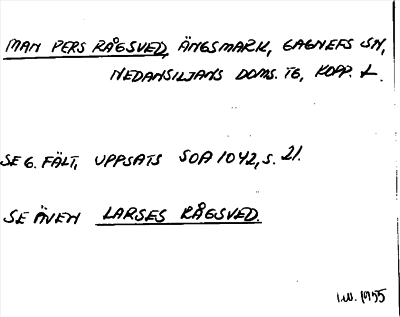 MAN PERS RÅGSVED, ÄNGSMARK, GAGNEFS SN,
NEDANSILJANS DOMS. TG, KOPP. L.
SE G. FÄLT, UPPSATS SOA 1042, S. 21.
SE ÄVEN LARSES RÅGSVED.
I.W. 1955